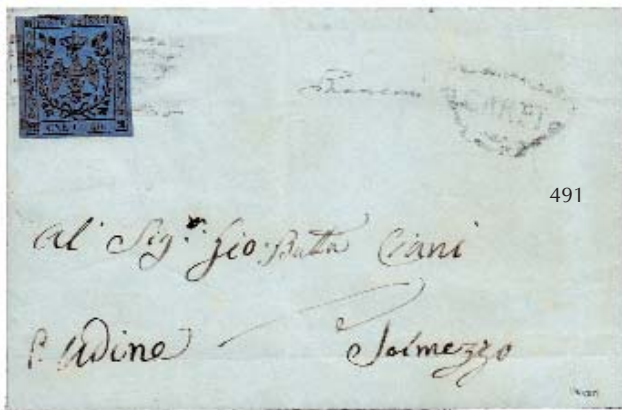 Franca
CARPI
491
Al Sig.r Gio: Batta Ciani
P. Udine Tolmezzo